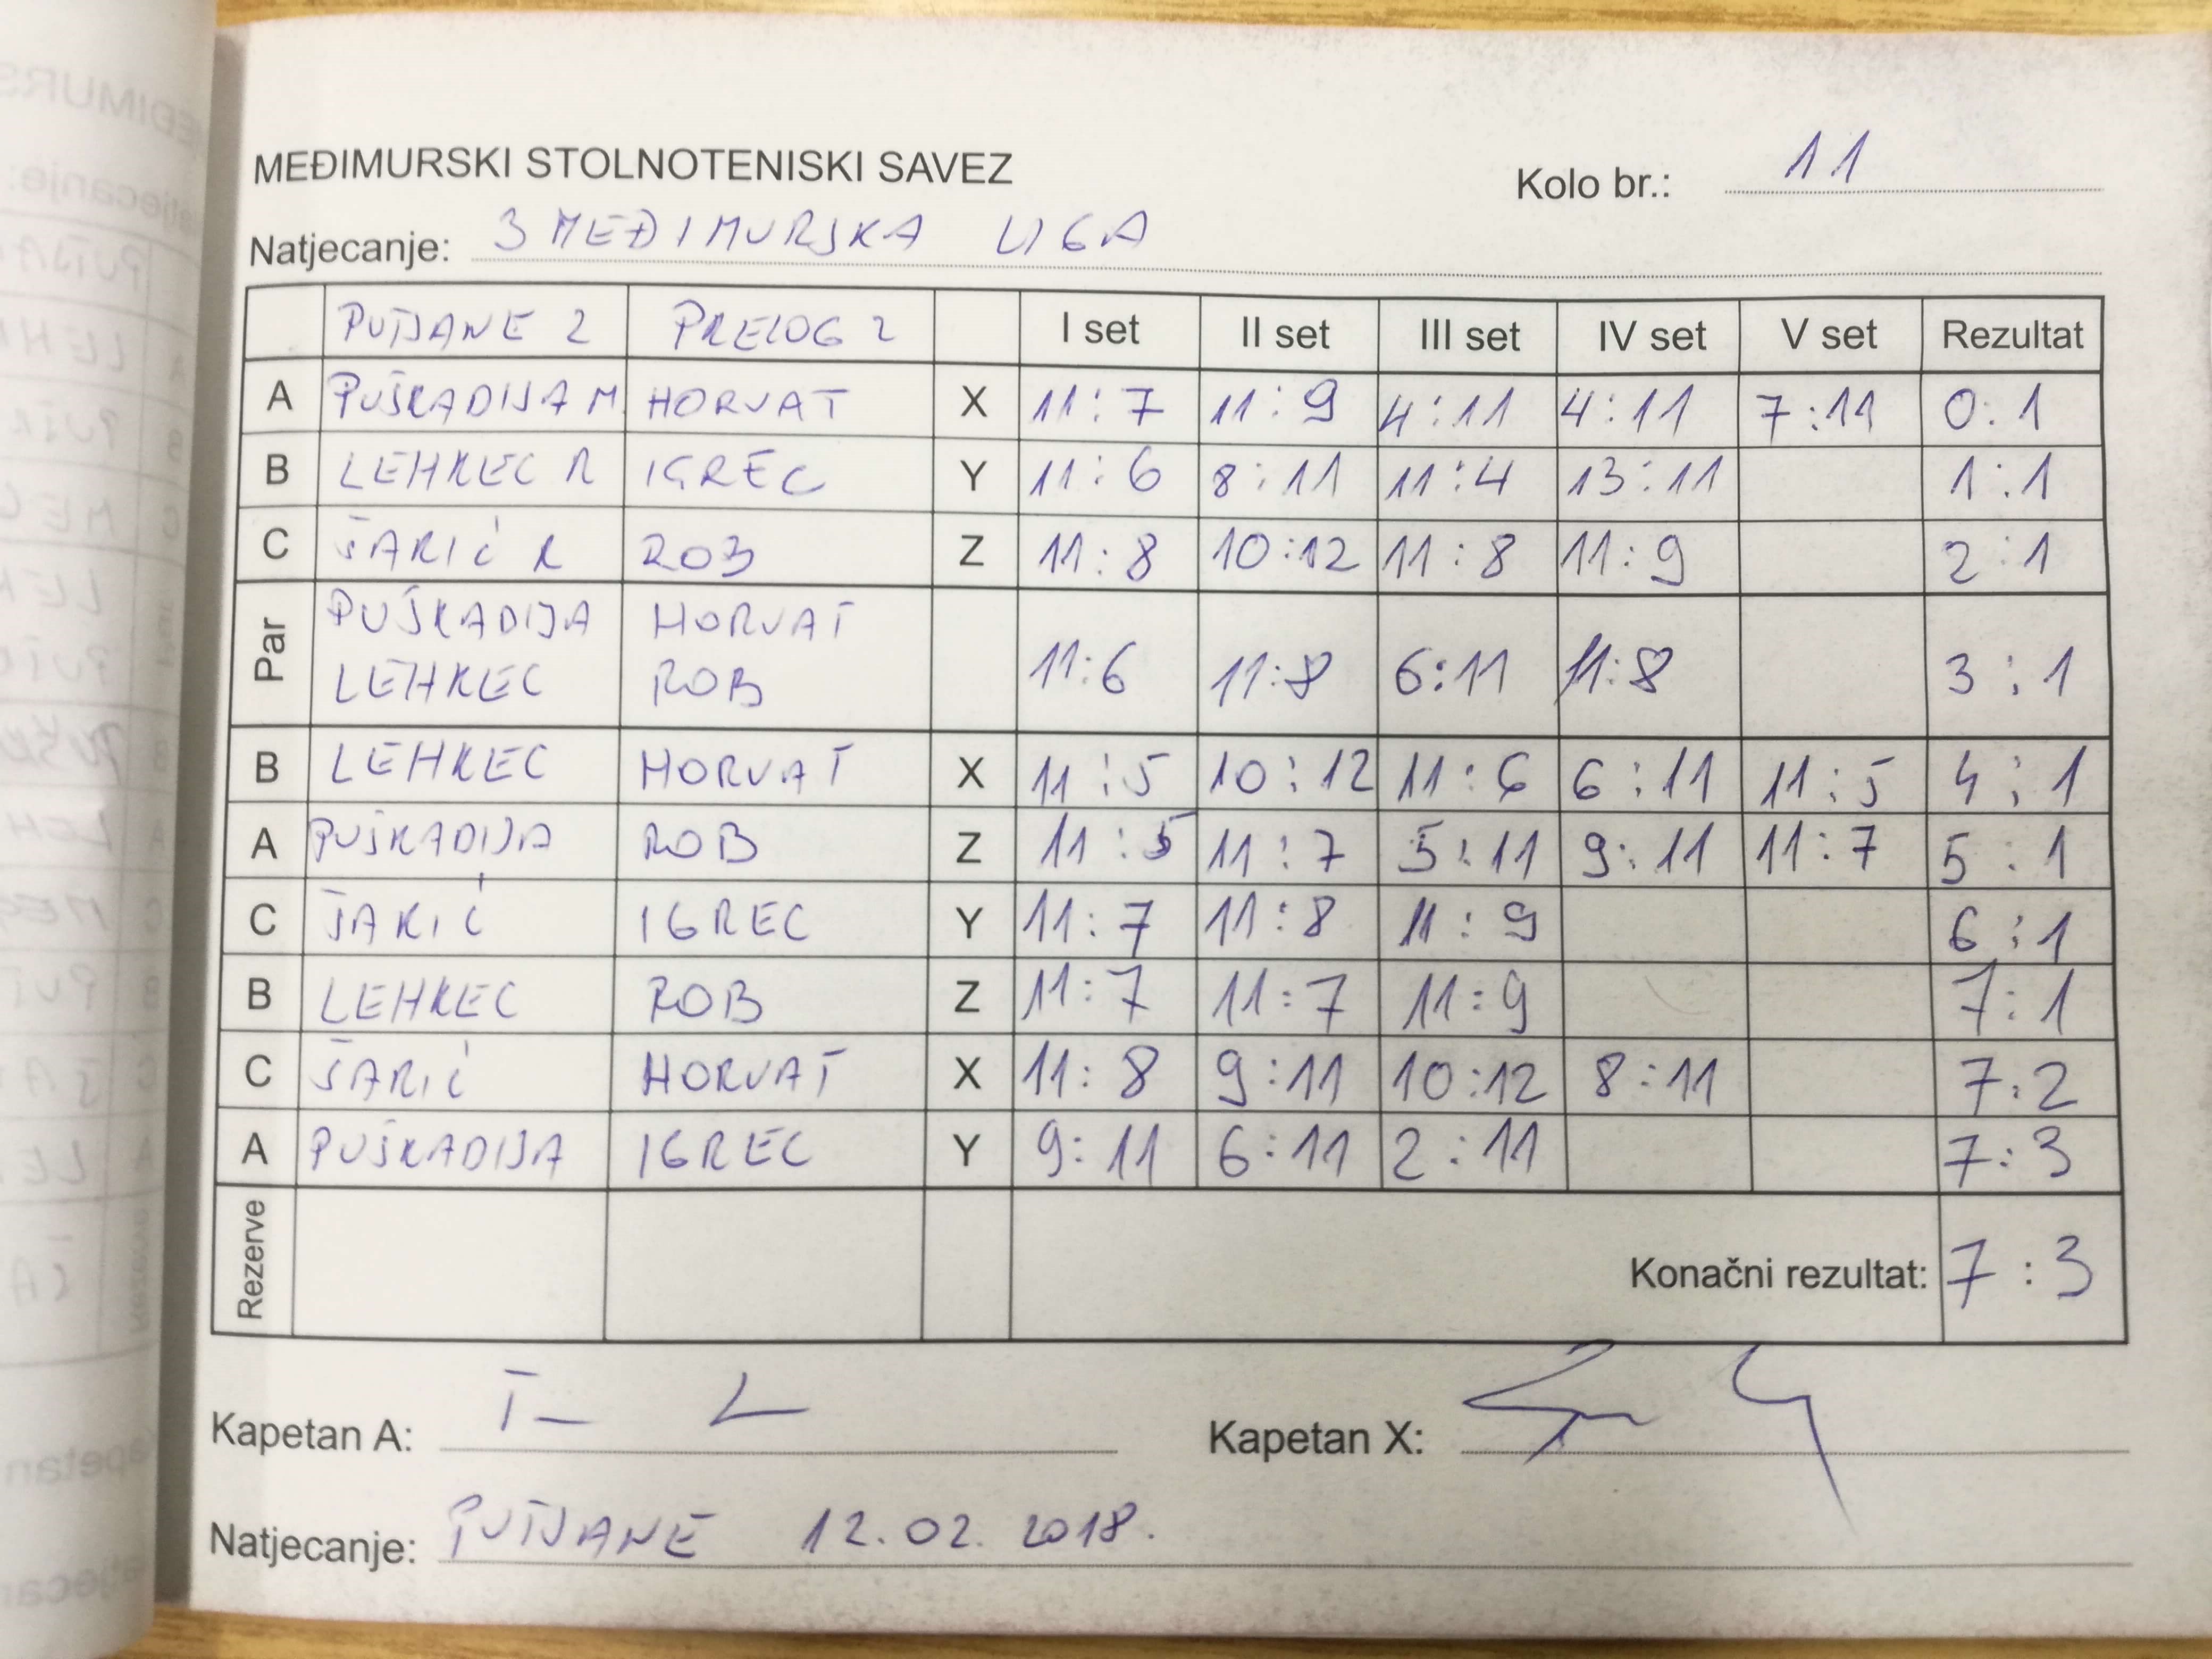 MEĐIMURSKI STOLNOTENISKI SAVEZ
Kolo br.: 11
Natjecanje: 3 MEĐIMURSKA LIGA
PUTJANE 2 PRELOG 2 I set II set III set IV set V set Rezultat
A PUŠKADIJA M. HORVAT X 11:7 11:9 4:11 4:11 7:11 0:1
B LEHKEC R IGREC Y 11:6 8:11 11:4 13:11 1:1
C ŠARIĆ R ROB Z 11:8 10:12 11:8 11:9 2:1
Par PUŠKADIJA HORVAT
LEHKEC ROB 11:6 11:8 6:11 11:8 3:1
B LEHKEC HORVAT X 11:5 10:12 11:6 6:11 11:5 4:1
A PUŠKADIJA ROB Z 11:5 11:7 5:11 9:11 11:7 5:1
C ŠARIĆ IGREC Y 11:7 11:8 11:9 6:1
B LEHKEC ROB Z 11:7 11:7 11:9 7:1
C ŠARIĆ HORVAT X 11:8 9:11 10:12 8:11 7:2
A PUŠKADIJA IGREC Y 9:11 6:11 2:11 7:3
Rezerve Konačni rezultat: 7:3
Kapetan A: Kapetan X:
Natjecanje: PUTJANE 12.02.2018.